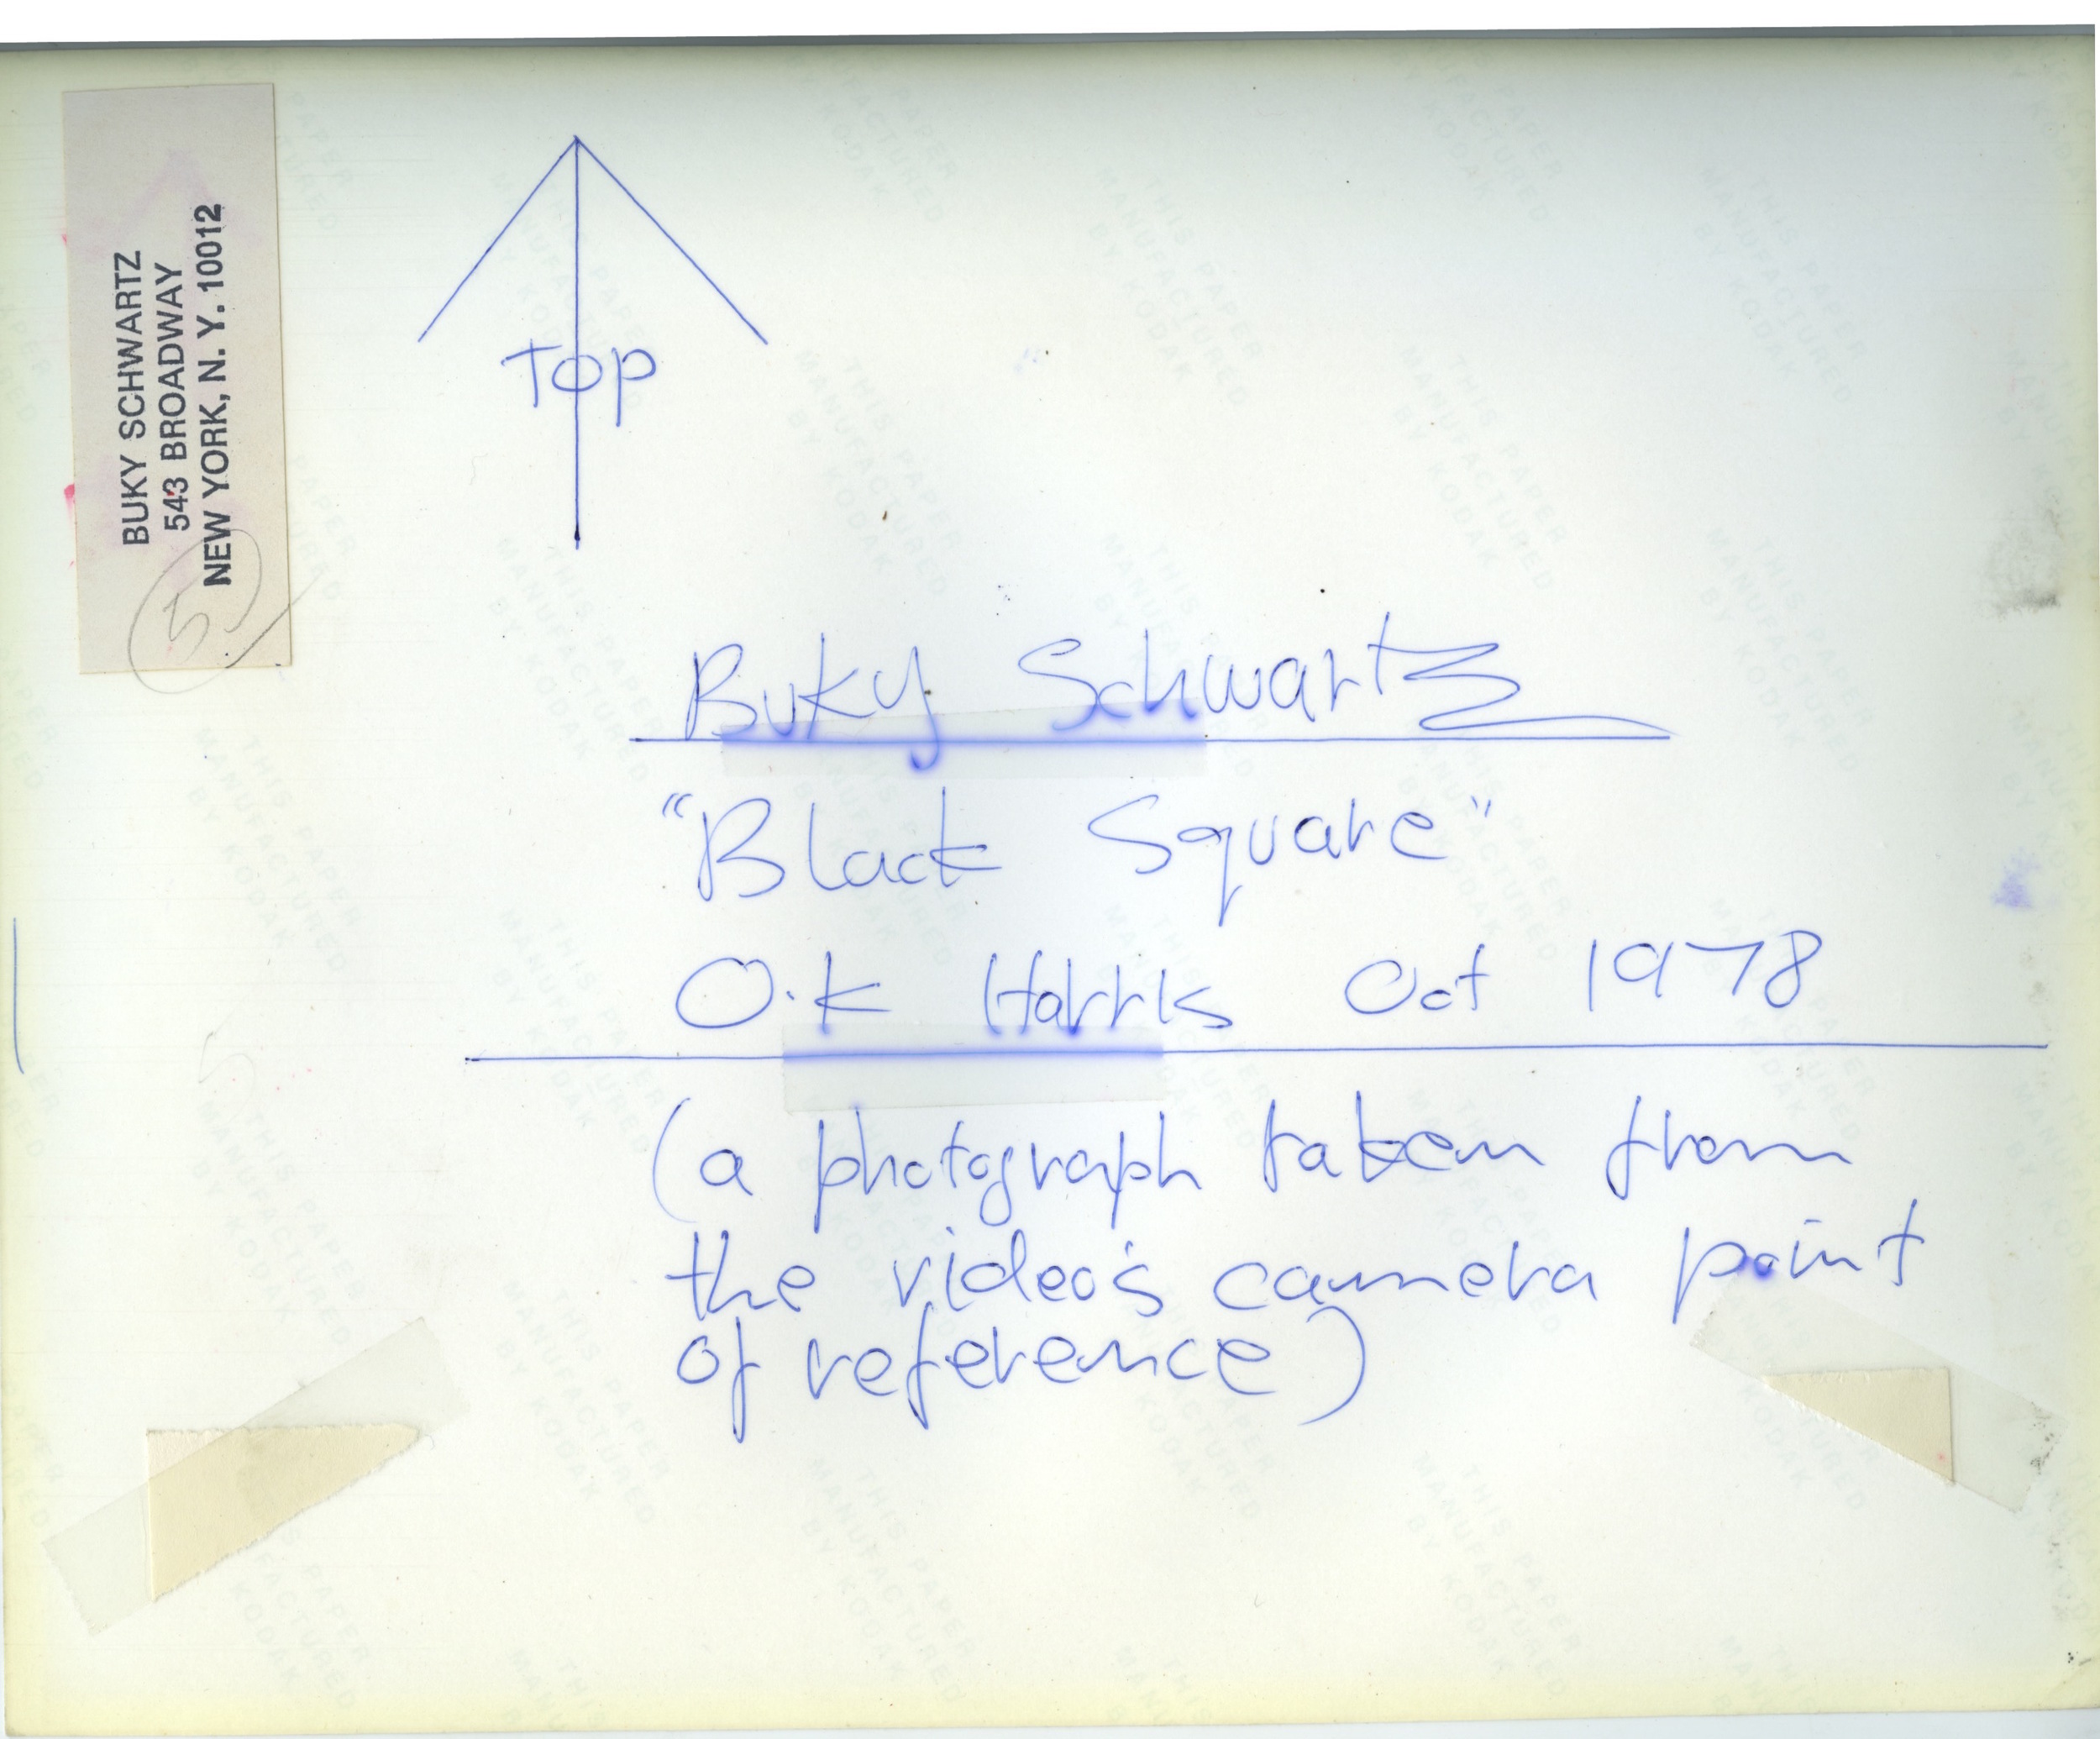 BUKY SCHWARTZ
543 BROADWAY
NEW YORK, N. Y. 10012
5
TOP
Buky Schwartz
"Black Square"
O.K Harris Oct 1978
(a photograph taken from
the video's camera point
of reference)
THIS PAPER
MANUFACTURED
BY KODAK